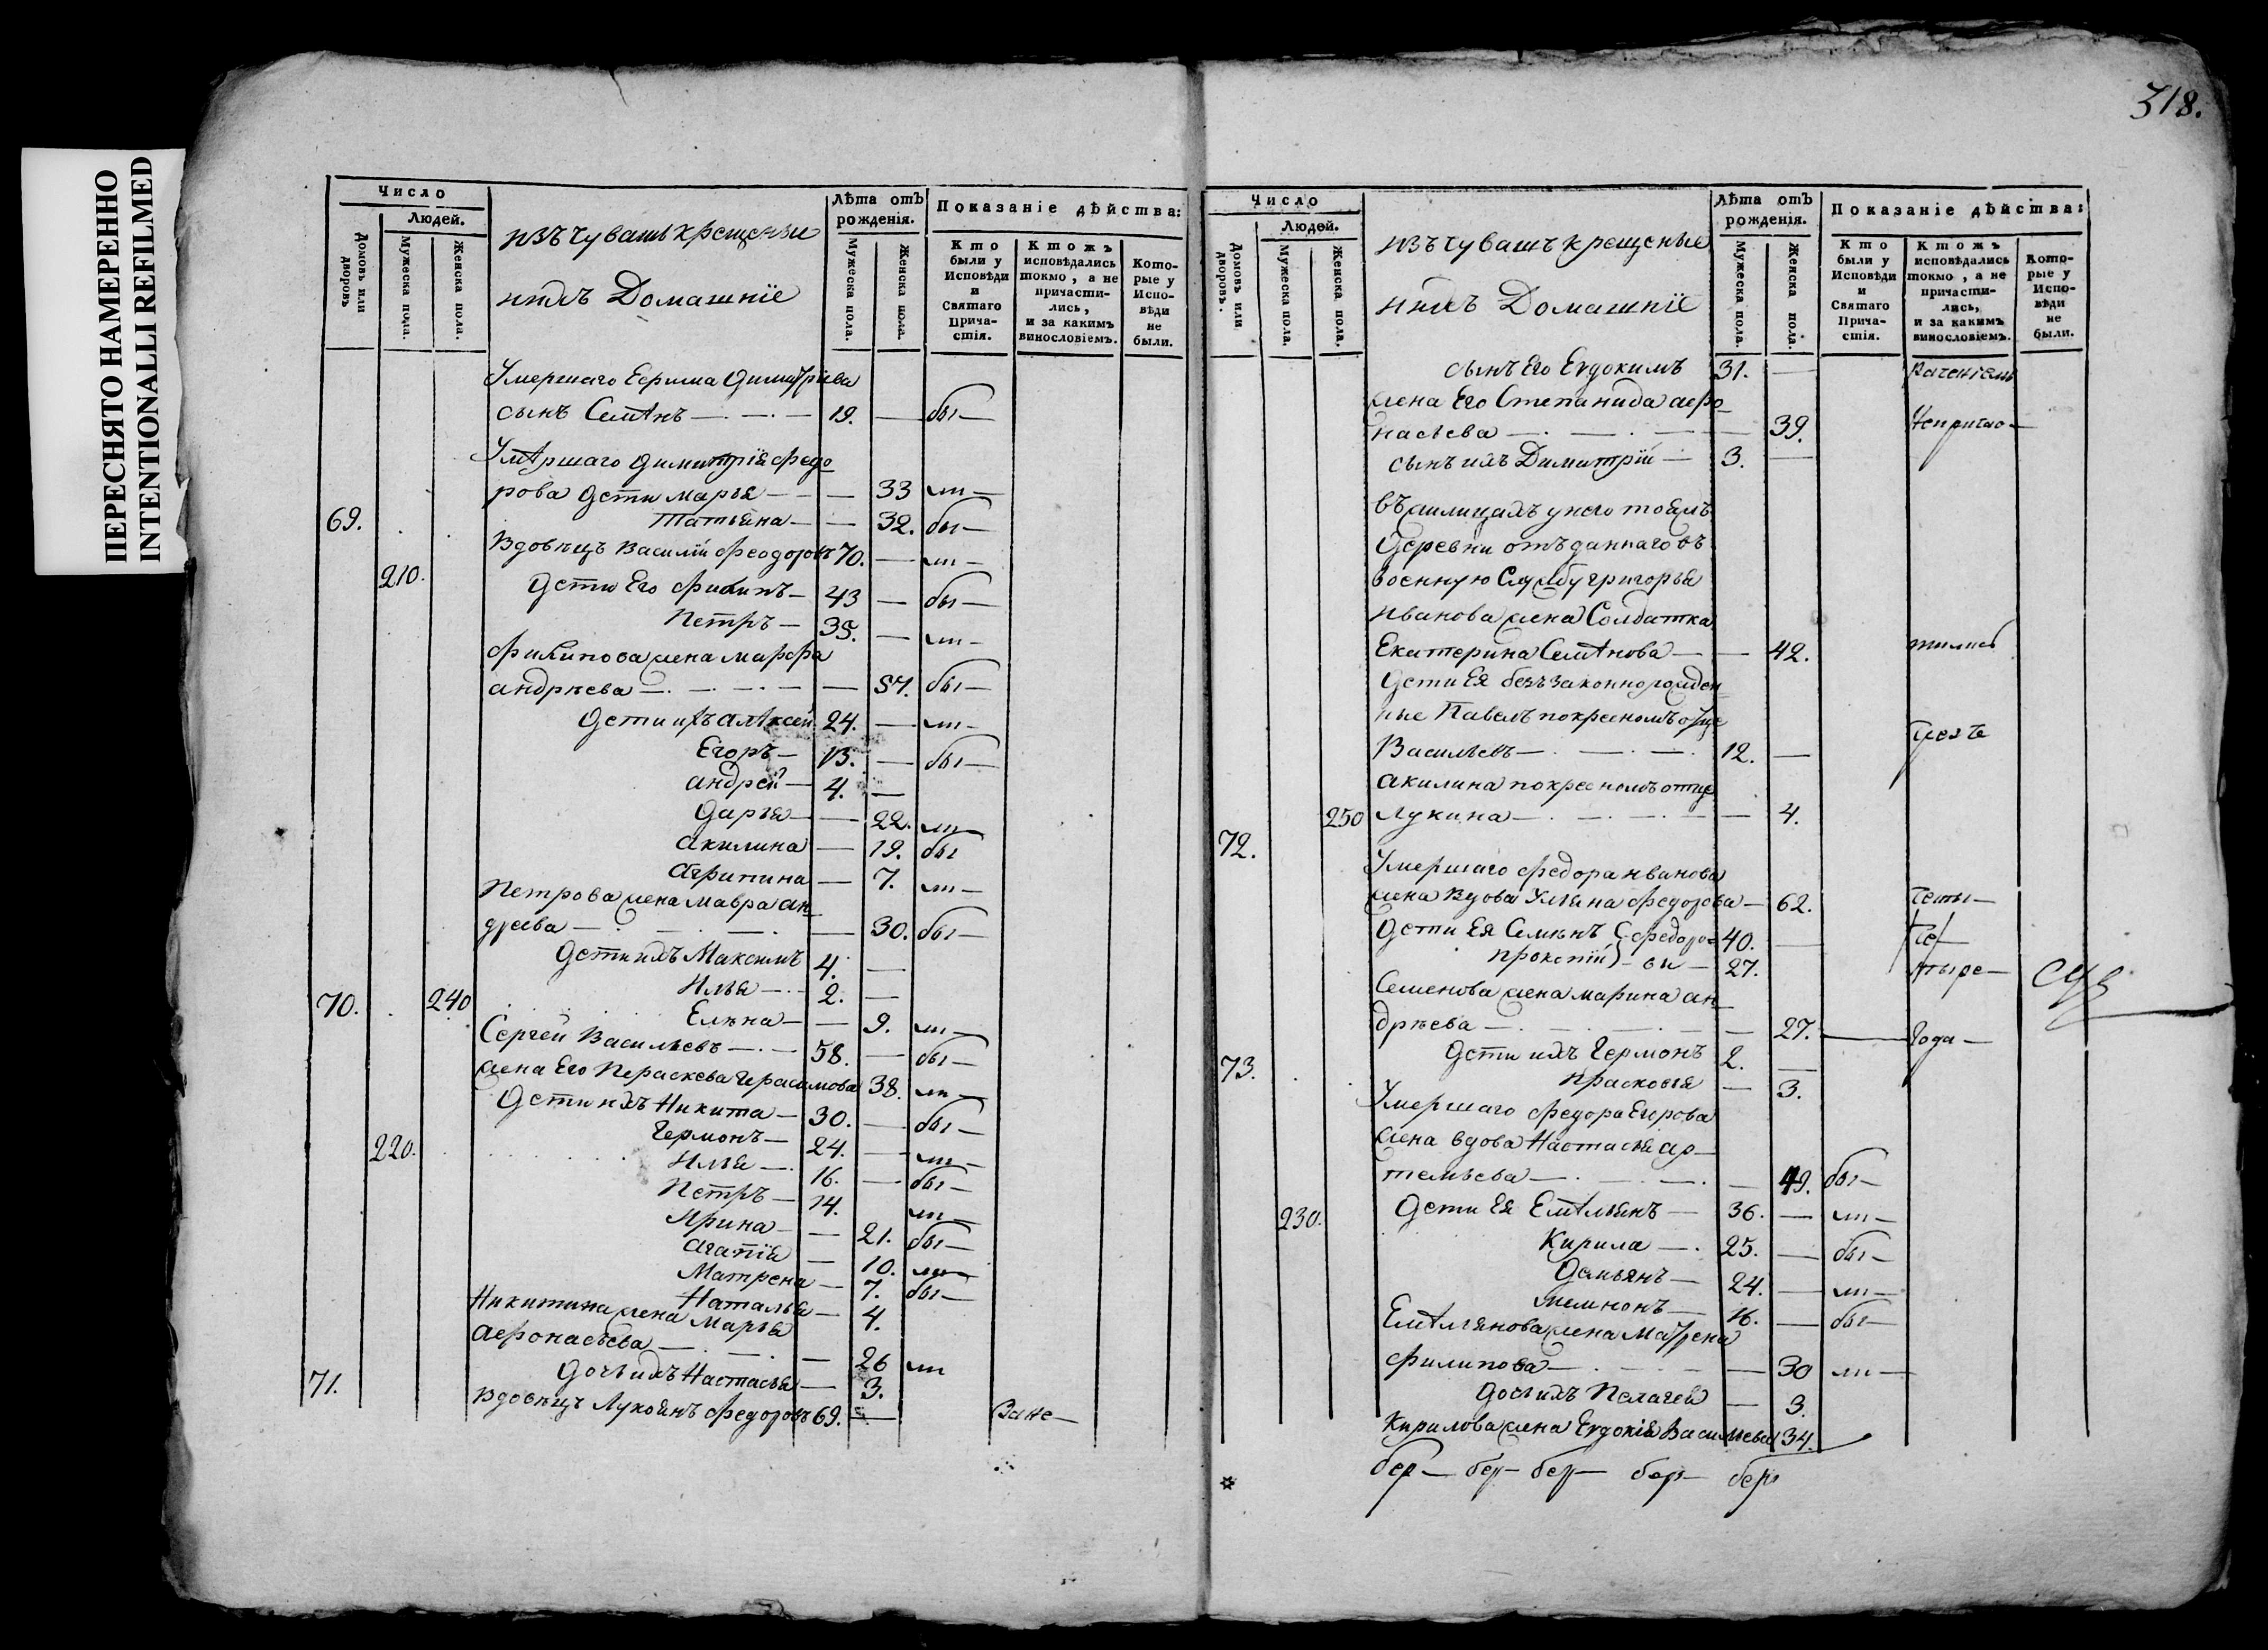 ПЕРЕСНЯТО НАМЕРЕННО
INTENTIONALLI REFILMED
318.
Число
Людей.
Домовъ или дворовъ
Мужеска пола.
Женска пола.
изъ чувашъ крещеные
и ихъ Домашніе
Лѣта отъ рожденія.
Мужеска пола.
Женска пола.
Показаніе дѣйства:
Кто были у Исповѣди и Святаго Прича-стія.
Ктожъ исповѣдались токмо, а не причасти-лись, и за какимъ винословіемъ.
Кото-рые у Испо-вѣди не были.
Умершаго Ефима Димитріева
сынъ Семенъ — 19. — бы —
Умершаго Димитрія Федо
рова Дети Марья — — 33 ли —
69. Татьяна — — 32. бы —
Вдовецъ Василій Феодоровъ 70. — ли —
210. Дети Его Филипъ — 43 — бы —
Петръ — 35. — ли —
Филипова жена Марфа
андрѣева — — 37. бы —
Дети ихъ алексей 24. — ли —
Егоръ — 13. — бы —
андрей — 4. —
Дарья — — 22. ли —
акилина — 19. бы
агрипина — 7. ли —
Петрова жена Мавра ан
дреева — — 30. бы —
Дети ихъ Максимъ 4. —
Илья — 2. —
70. 240 Елена — — 9. ли —
Сергей Васильевъ — 58. — бы —
жена Его Пераскева Герасимова 38. ли —
Дети ихъ Никита — 30. — бы —
Гермонъ — 24. — ли —
220. Илья — 16. — бы —
Петръ — 14. ли —
Ирина — — 21. бы —
агапія — 10. ли —
Матрена — 7. бы —
Наталья — 4.
Никитина жена Марья
афонасьева — — 26 ли
Дочь ихъ Настасья — 3.
71. вдовецъ Лукоянъ Федоровъ 69. — За не —
Число
Людей.
Домовъ или дворовъ.
Мужеска пола.
Женска пола.
изъ чувашъ крещеные
и ихъ Домашніе
Лѣта отъ рожденія.
Мужеска пола.
Женска пола.
Показаніе дѣйства:
Кто были у Исповѣди и Святаго Прича-стія.
Ктожъ исповѣдались токмо, а не причасти-лись, и за какимъ винословіемъ.
Кото-рые у Испо-вѣди не были.
сынъ Его Евдокимъ 31. —
жена Его Степанида афо
насьева — — 39.
сынъ ихъ Димитрій — 3. —
въ жилицахъ у него той жъ
Деревни отъданнаго въ
военную Службу григорья
иванова жена Солдатка
Екатерина Семенова — — 42.
Дети Ея безъзаконнорожден
ные Павелъ по кресномъ отце
Васильевъ — 12. —
акилина по кресномъ отце
250 Лукина — — 4.
72.
Умершаго Федора иванова
жена Вдова Ульяна Федорова — 62. четы —
Дети Ея Семенъ Федоро= 40. — ре
прокопій — вы — 27.
Семенова жена марина ан
дрѣева — — 27. — года —
Дети ихъ Гермонъ 2. —
73. прасковья — 3.
Умершаго Федора Егорова
жена вдова Настасья ар
темьева — — 49. бы —
230. Дети Ея Емельянъ — 36. — ли —
Кирила — 25. — бы —
Демьянъ — 24. — ли —
мемнонъ — 16. — бы —
Емельянова жена Матрена
Филипова — — 30 ли —
Дочь ихъ Пелагея — 3.
Кирилова жена Евдокія Васильева 34.